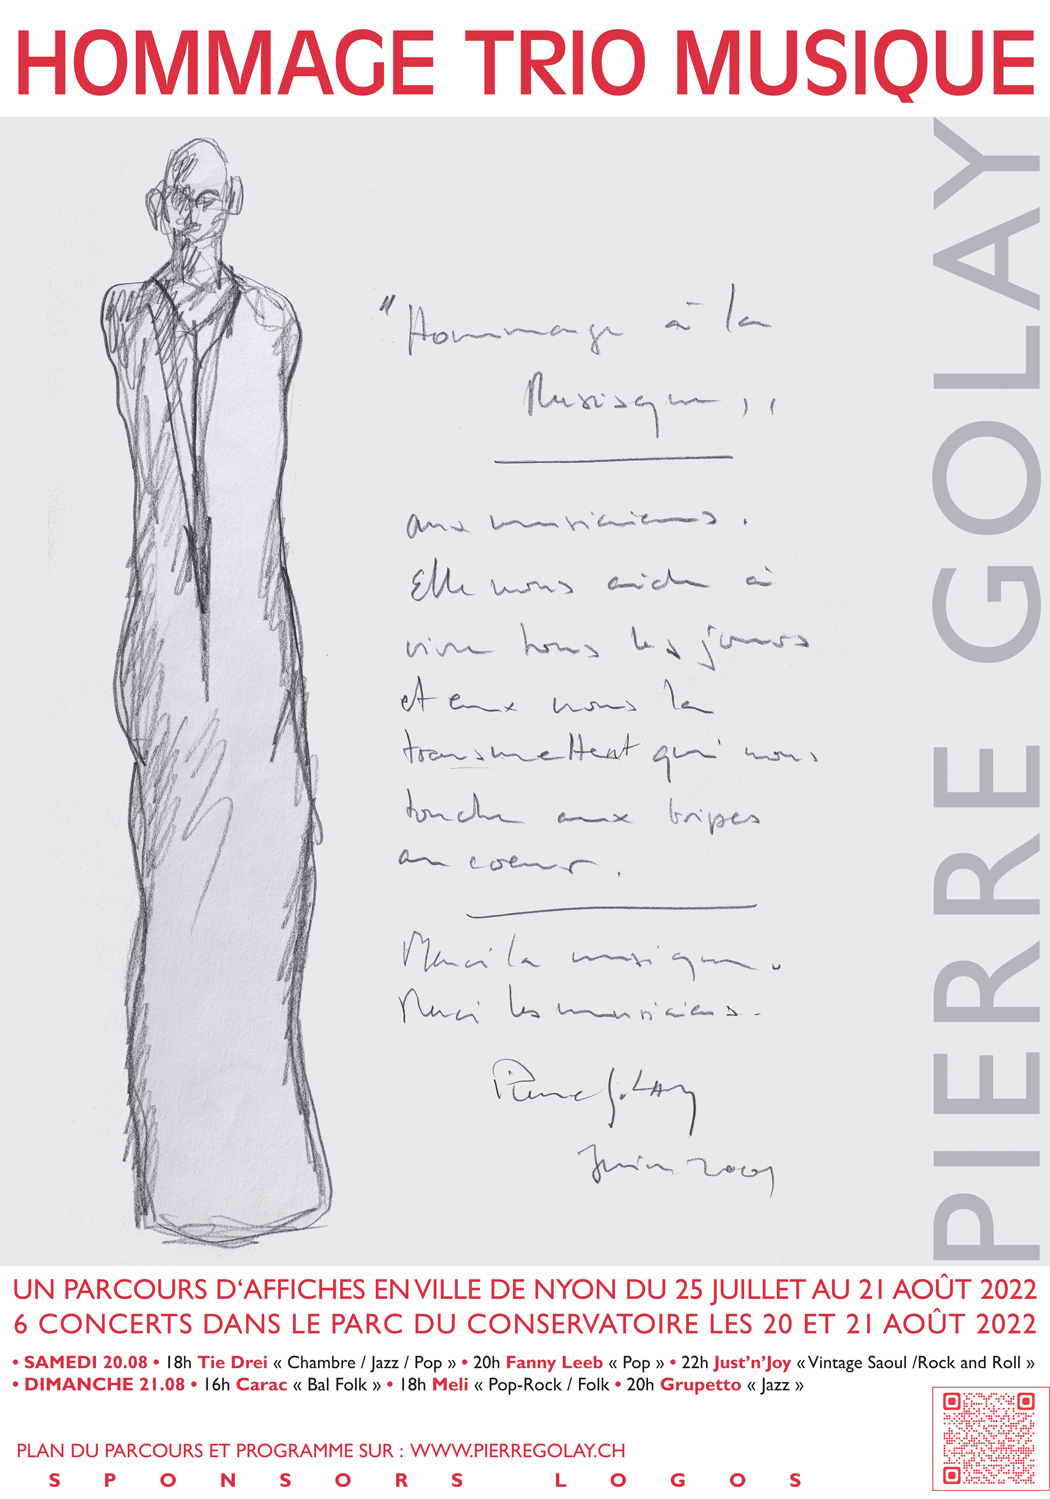 HOMMAGE TRIO MUSIQUE
PIERRE GOLAY
"Hommage à la
Musique,,
aux musiciens.
Elle nous aide à
vivre tous les jours
et eux nous la
transmettent qui nous
touche aux tripes
au coeur.
Merci la musique.
Merci les musiciens.
Pierre Golay
Juin 2009
UN PARCOURS D'AFFICHES EN VILLE DE NYON DU 25 JUILLET AU 21 AOÛT 2022
6 CONCERTS DANS LE PARC DU CONSERVATOIRE LES 20 ET 21 AOÛT 2022
• SAMEDI 20.08 • 18h Tie Drei « Chambre / Jazz / Pop » • 20h Fanny Leeb « Pop » • 22h Just'n'Joy « Vintage Saoul /Rock and Roll »
• DIMANCHE 21.08 • 16h Carac « Bal Folk » • 18h Meli « Pop-Rock / Folk • 20h Grupetto « Jazz »
PLAN DU PARCOURS ET PROGRAMME SUR : WWW.PIERREGOLAY.CH
SPONSORS LOGOS